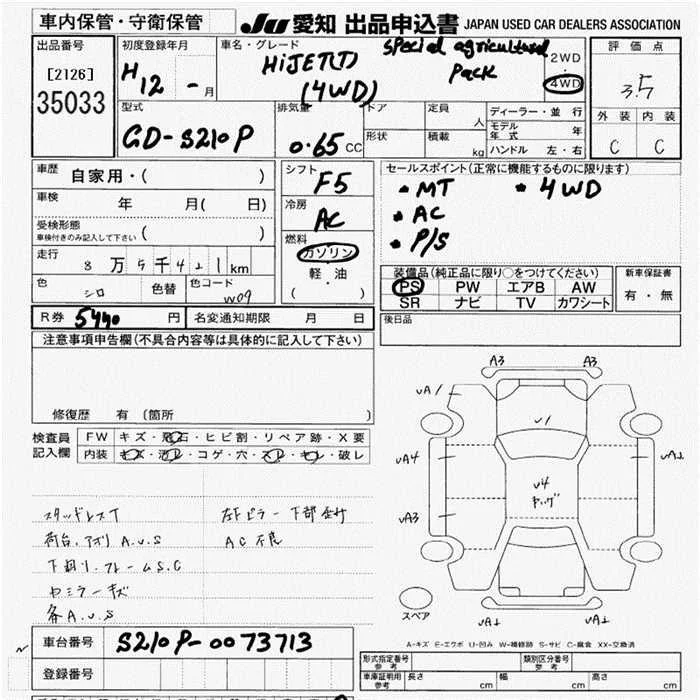 車内保管・守衛保管
JU 愛知 出品申込書 JAPAN USED CAR DEALERS ASSOCIATION
出品番号
[2126]
35033
初度登録年月
H12 - 月
車名・グレード
HiJET
(4WD)
special agricultural
pack
2WD
・
4WD
評価点
3.5
外装 内装
C C
型式
GD-S210P
排気量
0.65 CC
ドア
形状
定員 人
積載 kg
ディーラー・並行
モデル年式 年
ハンドル 左・右
車歴 自家用・( )
車検 年 月( 日)
受検形態 ( )
車検付きのみ記入して下さい
走行 8万5千421km
色 シロ 色替 色コード W09
シフト
F5
冷房
AC
燃料
ガソリン
・
軽・油
( )
セールスポイント(正常に機能するものに限ります)
• MT • 4WD
• AC
• P/S
装備品(純正品に限り○をつけてください)
PS PW エアB AW
SR ナビ TV カワシート
新車保証書
有・無
後日品
R券 5440 円 名変通知期限 月 日
注意事項申告欄(不具合内容等は具体的に記入して下さい)
修復歴 有(箇所 )
検査員記入欄
FW キズ・飛石・ヒビ割・リペア跡・X要
内装 キズ・汚レ・コゲ・穴・スレ・キレ・破レ
スタッドレスT
荷台、アオリ A.U.S
下廻り、フレームS.C
ミラーキズ
各A.U.S
下部
AC不良
A3 A3
UA1
U1
UA4
U4
UA1
UA3
スペア
UA1 UA1
A-キズ E-エクボ U-凹み W-補修跡 S-サビ C-腐食 XX-交換済
車台番号 S210P-0073713
登録番号
形式指定番号 参考
類別区分番号 参考
車庫証明用 参考 長さ cm 幅 cm 高さ cm